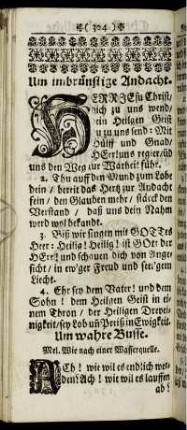 ( 304 )
Um inbrünstige Andacht.
HERR JEsu Christ/
dich zu uns wend/
ein Heilgen Geist
u zu uns send: Mit
Hülff und Gnad/
HErr/uns regier/uñ
uns den Weg zur Warheit führ.
2. Thu auff den Mund zum Lobe
dein / bereit das Hertz zur Andacht
fein / den Glauben mehr / stärck den
Verstand / daß uns dein Nahm
werd wol bekandt.
3. Biß wir singen mit GOTTes
Heer: Heilig! Heilig! ist GOt der
HErr! und schauen dich von Ange-
sicht / in ew'ger Freud und sel'gem
Liecht.
4. Ehr sey dem Vater! und dem
Sohn! dem Heilgen Geist in ei-
nem Thron / der Heiligen Dreyei-
nigkeit/sey Lob uñ Preiß in Ewigkeit.
Um wahre Busse.
Mel. Wie nach einer Wasserquelle.
ACh! wie wil es endlich wer-
den! Ach! wie wil es lauffen
ab!